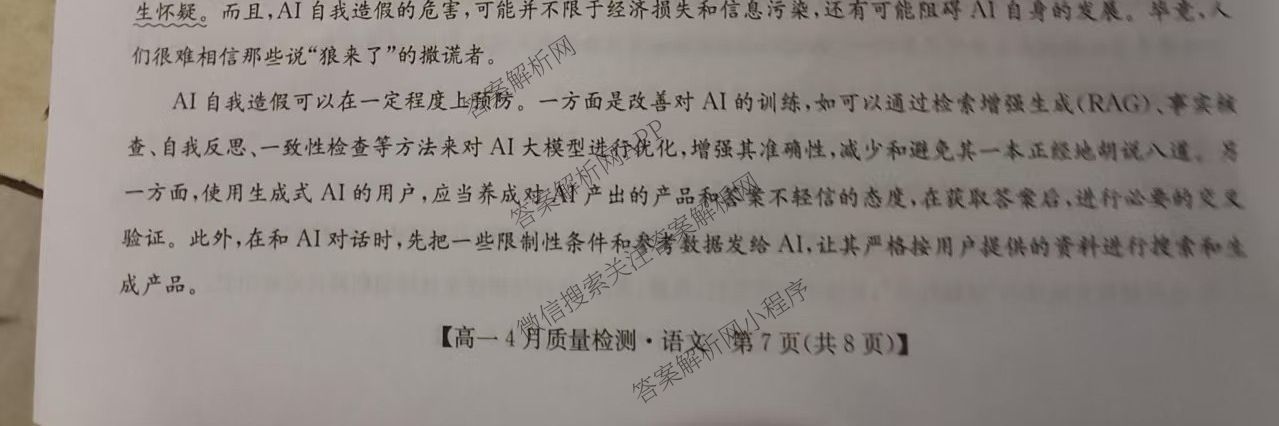 生怀疑。而且,AI自我造假的危害,可能并不限于经济损失和信息污染,还有可能阻碍AI自身的发展。毕竟,人
们很难相信那些说“狼来了”的撒谎者。
AI自我造假可以在一定程度上预防。一方面是改善对AI的训练,如可以通过检索增强生成(RAG)、事实核
查、自我反思、一致性检查等方法来对AI大模型进行优化,增强其准确性,减少和避免其一本正经地胡说八道。另
一方面,使用生成式AI的用户,应当养成对AI产出的产品和答案不轻信的态度,在获取答案后,进行必要的交叉
验证。此外,在和AI对话时,先把一些限制性条件和参考数据发给AI,让其严格按用户提供的资料进行搜索和生
成产品。
【高一4月质量检测·语文 第7页(共8页)】
答案解析网
答案解析网APP
微信搜索关注答案解析网
答案解析网小程序